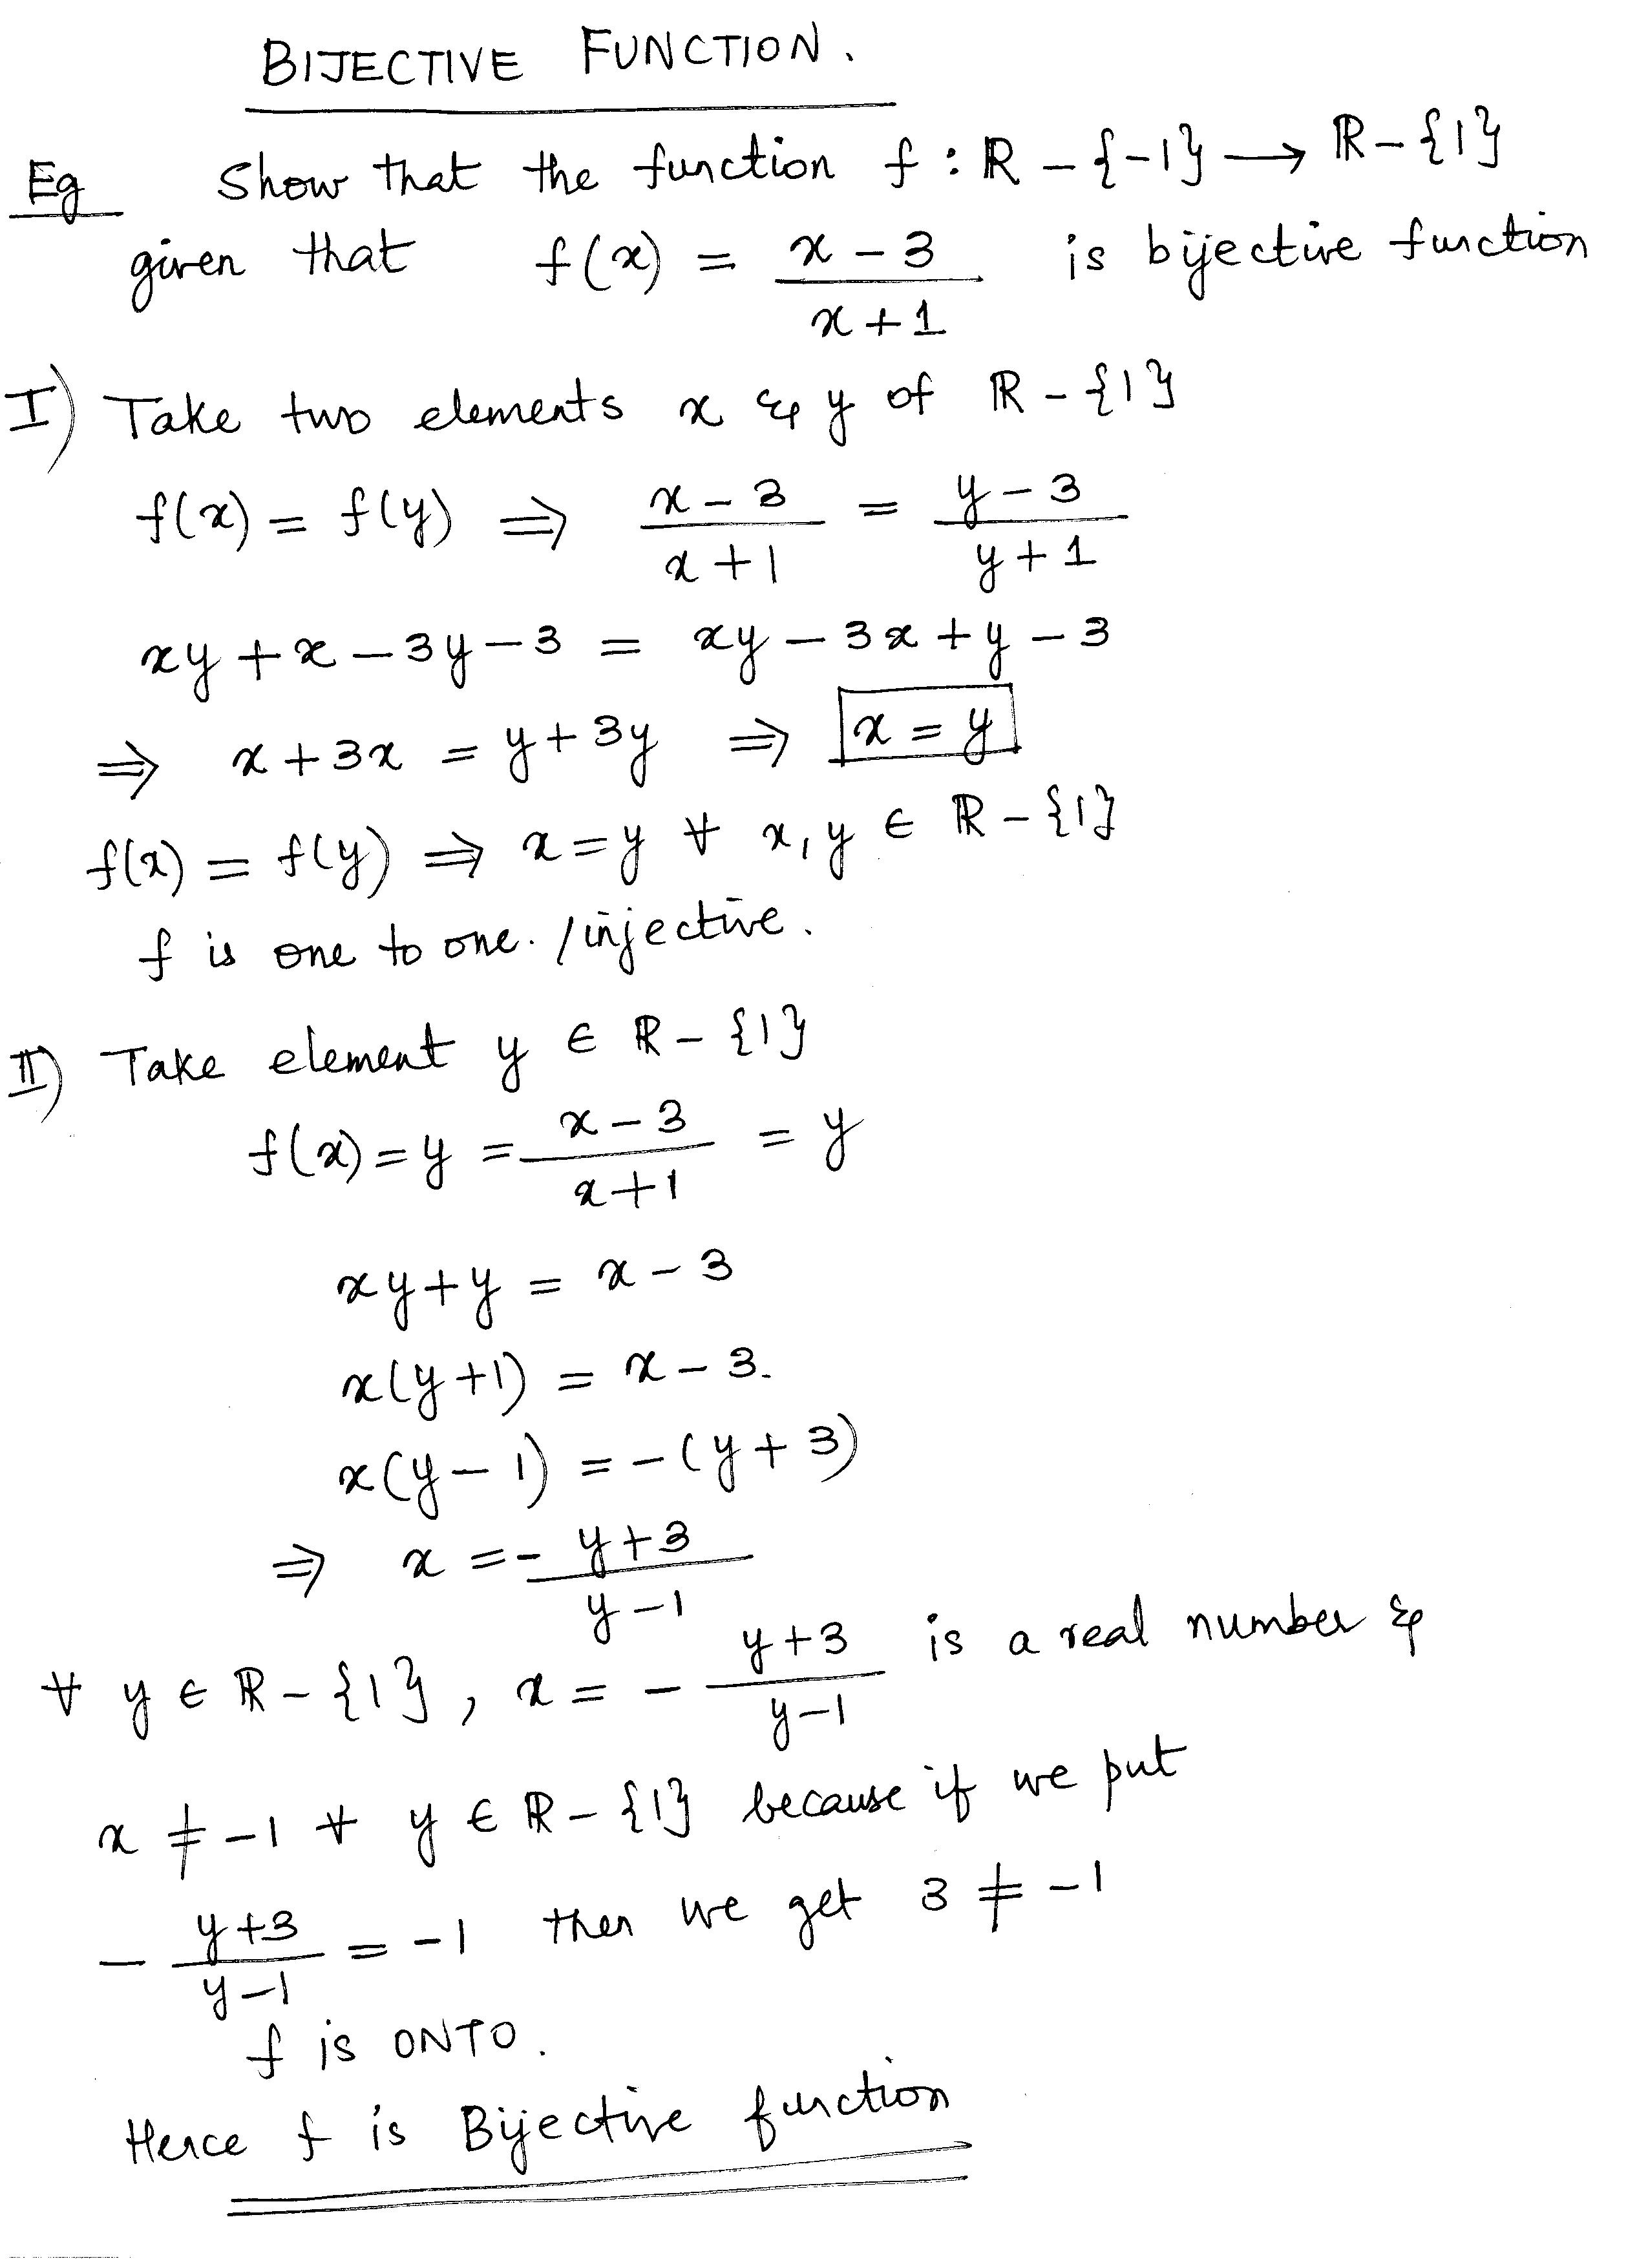 BIJECTIVE FUNCTION.
Eg Show that the function f : ℝ - {-1} → ℝ - {1}
given that f(x) = (x - 3)/(x + 1) is bijective function
I) Take two elements x & y of ℝ - {1}
f(x) = f(y) ⇒ (x - 3)/(x + 1) = (y - 3)/(y + 1)
xy + x - 3y - 3 = xy - 3x + y - 3
⇒ x + 3x = y + 3y ⇒ x = y
f(x) = f(y) ⇒ x = y ∀ x, y ∈ ℝ - {1}
f is one to one. / injective.
II) Take element y ∈ ℝ - {1}
f(x) = y = (x - 3)/(x + 1) = y
xy + y = x - 3
x(y + 1) = x - 3.
x(y - 1) = -(y + 3)
⇒ x = - (y + 3)/(y - 1)
∀ y ∈ ℝ - {1}, x = - (y + 3)/(y - 1) is a real number &
x ≠ -1 ∀ y ∈ ℝ - {1} because if we put
- (y + 3)/(y - 1) = -1 then we get 3 ≠ -1
f is ONTO.
Hence f is Bijective function